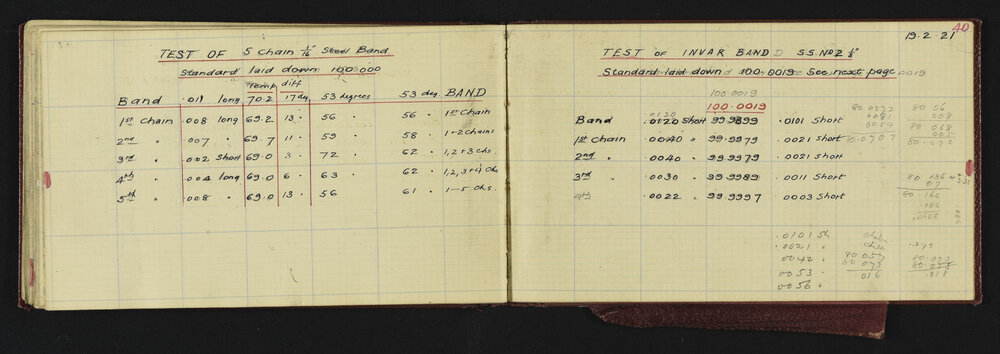 TEST OF 5 Chain 1/16" Steel Band
Standard laid down 100.000
Temp diff
Band .011 long 70.2 17 deg 53 degrees 53 deg BAND
1st Chain .008 long 69.2 13 . 56 56 . 1st Chain
2nd " .007 " 69.7 11 . 59 58 . 1-2 Chains
3rd " .002 Short 69.0 3 . 72 62 . 1,2+3 chs.
4th " .004 long 69.0 6 . 63 62 . 1,2,3+4 chs
5th " .008 " 69.0 13 . 56 61 . 1-5 chs.
40
19.2.21
TEST OF INVAR BAND D S.S. No 2 1/8
Standard laid down 100.0019 See next page
100.0019
100.0019
.0120
Band .0120 Short 99.9899 .0101 Short
1st Chain .0040 " 99.9979 .0021 Short
2nd " .0040 " 99.9979 .0021 Short
3rd " .0030 " 99.9989 .0011 Short
4th " .0022 " 99.9997 .0003 Short
80.06
008
80.068
80.166
.0101 Sh
.0021 "
.0042 "
.0053 "
.0056 "
80.057
80.073
016
.018